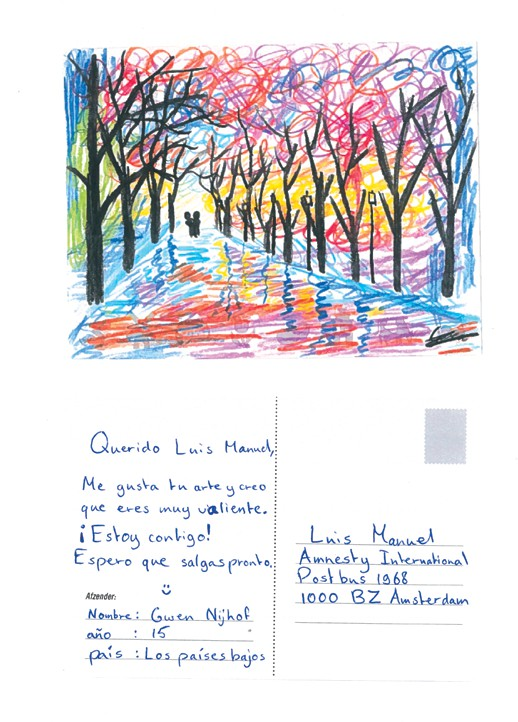 Querido Luis Manuel,
Me gusta tu arte y creo
que eres muy valiente.
¡Estoy contigo!
Espero que salgas pronto.
Afzender:
Nombre: Gwen Nijhof
año : 15
país : Los países bajos
Luis Manuel
Amnesty International
Postbus 1968
1000 BZ Amsterdam